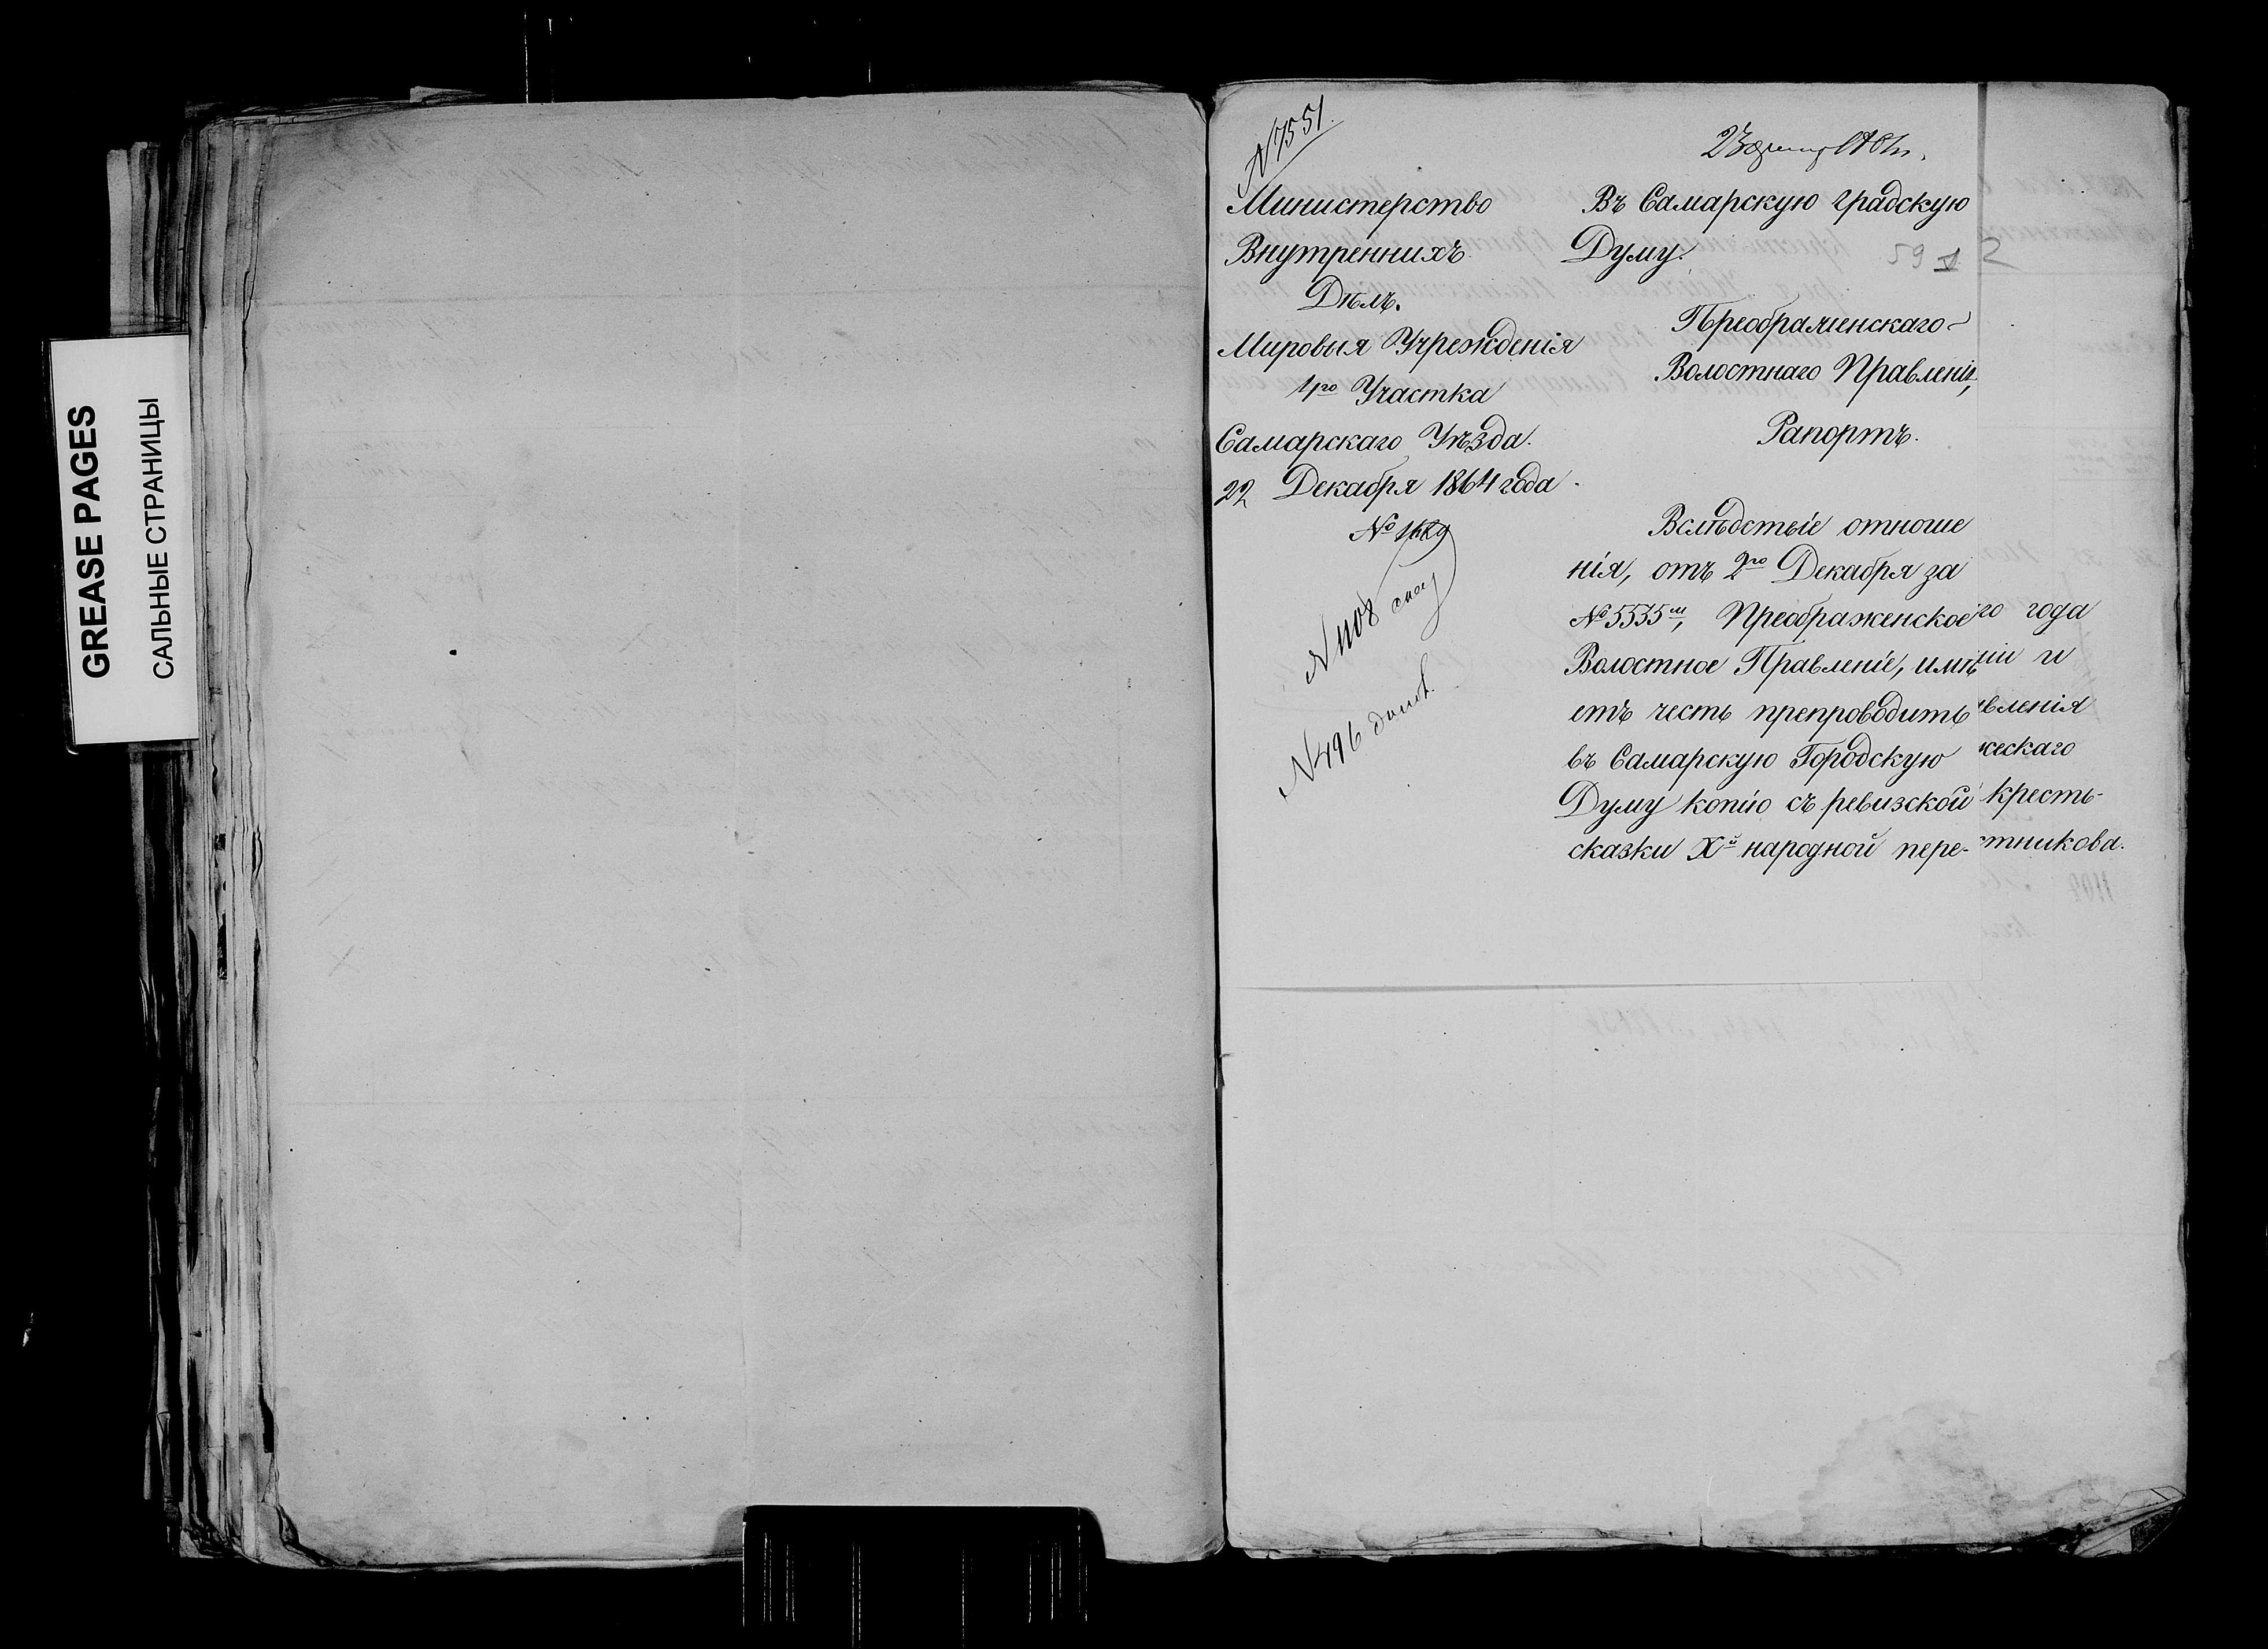 GREASE PAGES
САЛЬНЫЕ СТРАНИЦЫ
N 7551.
Министерство
Внутреннихъ
Дѣлъ.
Мировыя Учрежденія
4го Участка
Самарскаго Уѣзда.
22 Декабря 1864 года.
№
N 1108
N 496
23
Въ Самарскую градскую
Думу.
59 2
Преображенскаго
Волостнаго Правленія,
Рапортъ.
Вслѣдствіе отноше
нія, отъ 2го Декабря за
№ 5535м, Преображенское
Волостное Правленіе, имѣ
етъ честь препроводить
въ Самарскую Городскую
Думу копію съ ревизской
сказки Xй народной пере-
го года
іи и
вленія
ческаго
кресть-
тникова.